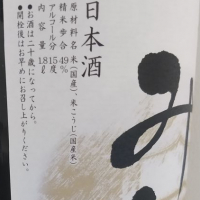 日本酒
原材料名 米(国産)、米こうじ(国産米)
精米歩合 49%
アルコール分 15度
内容量 1.8ℓ
●お酒は二十歳になってから。
●開栓後はお早めにお召し上がりください。